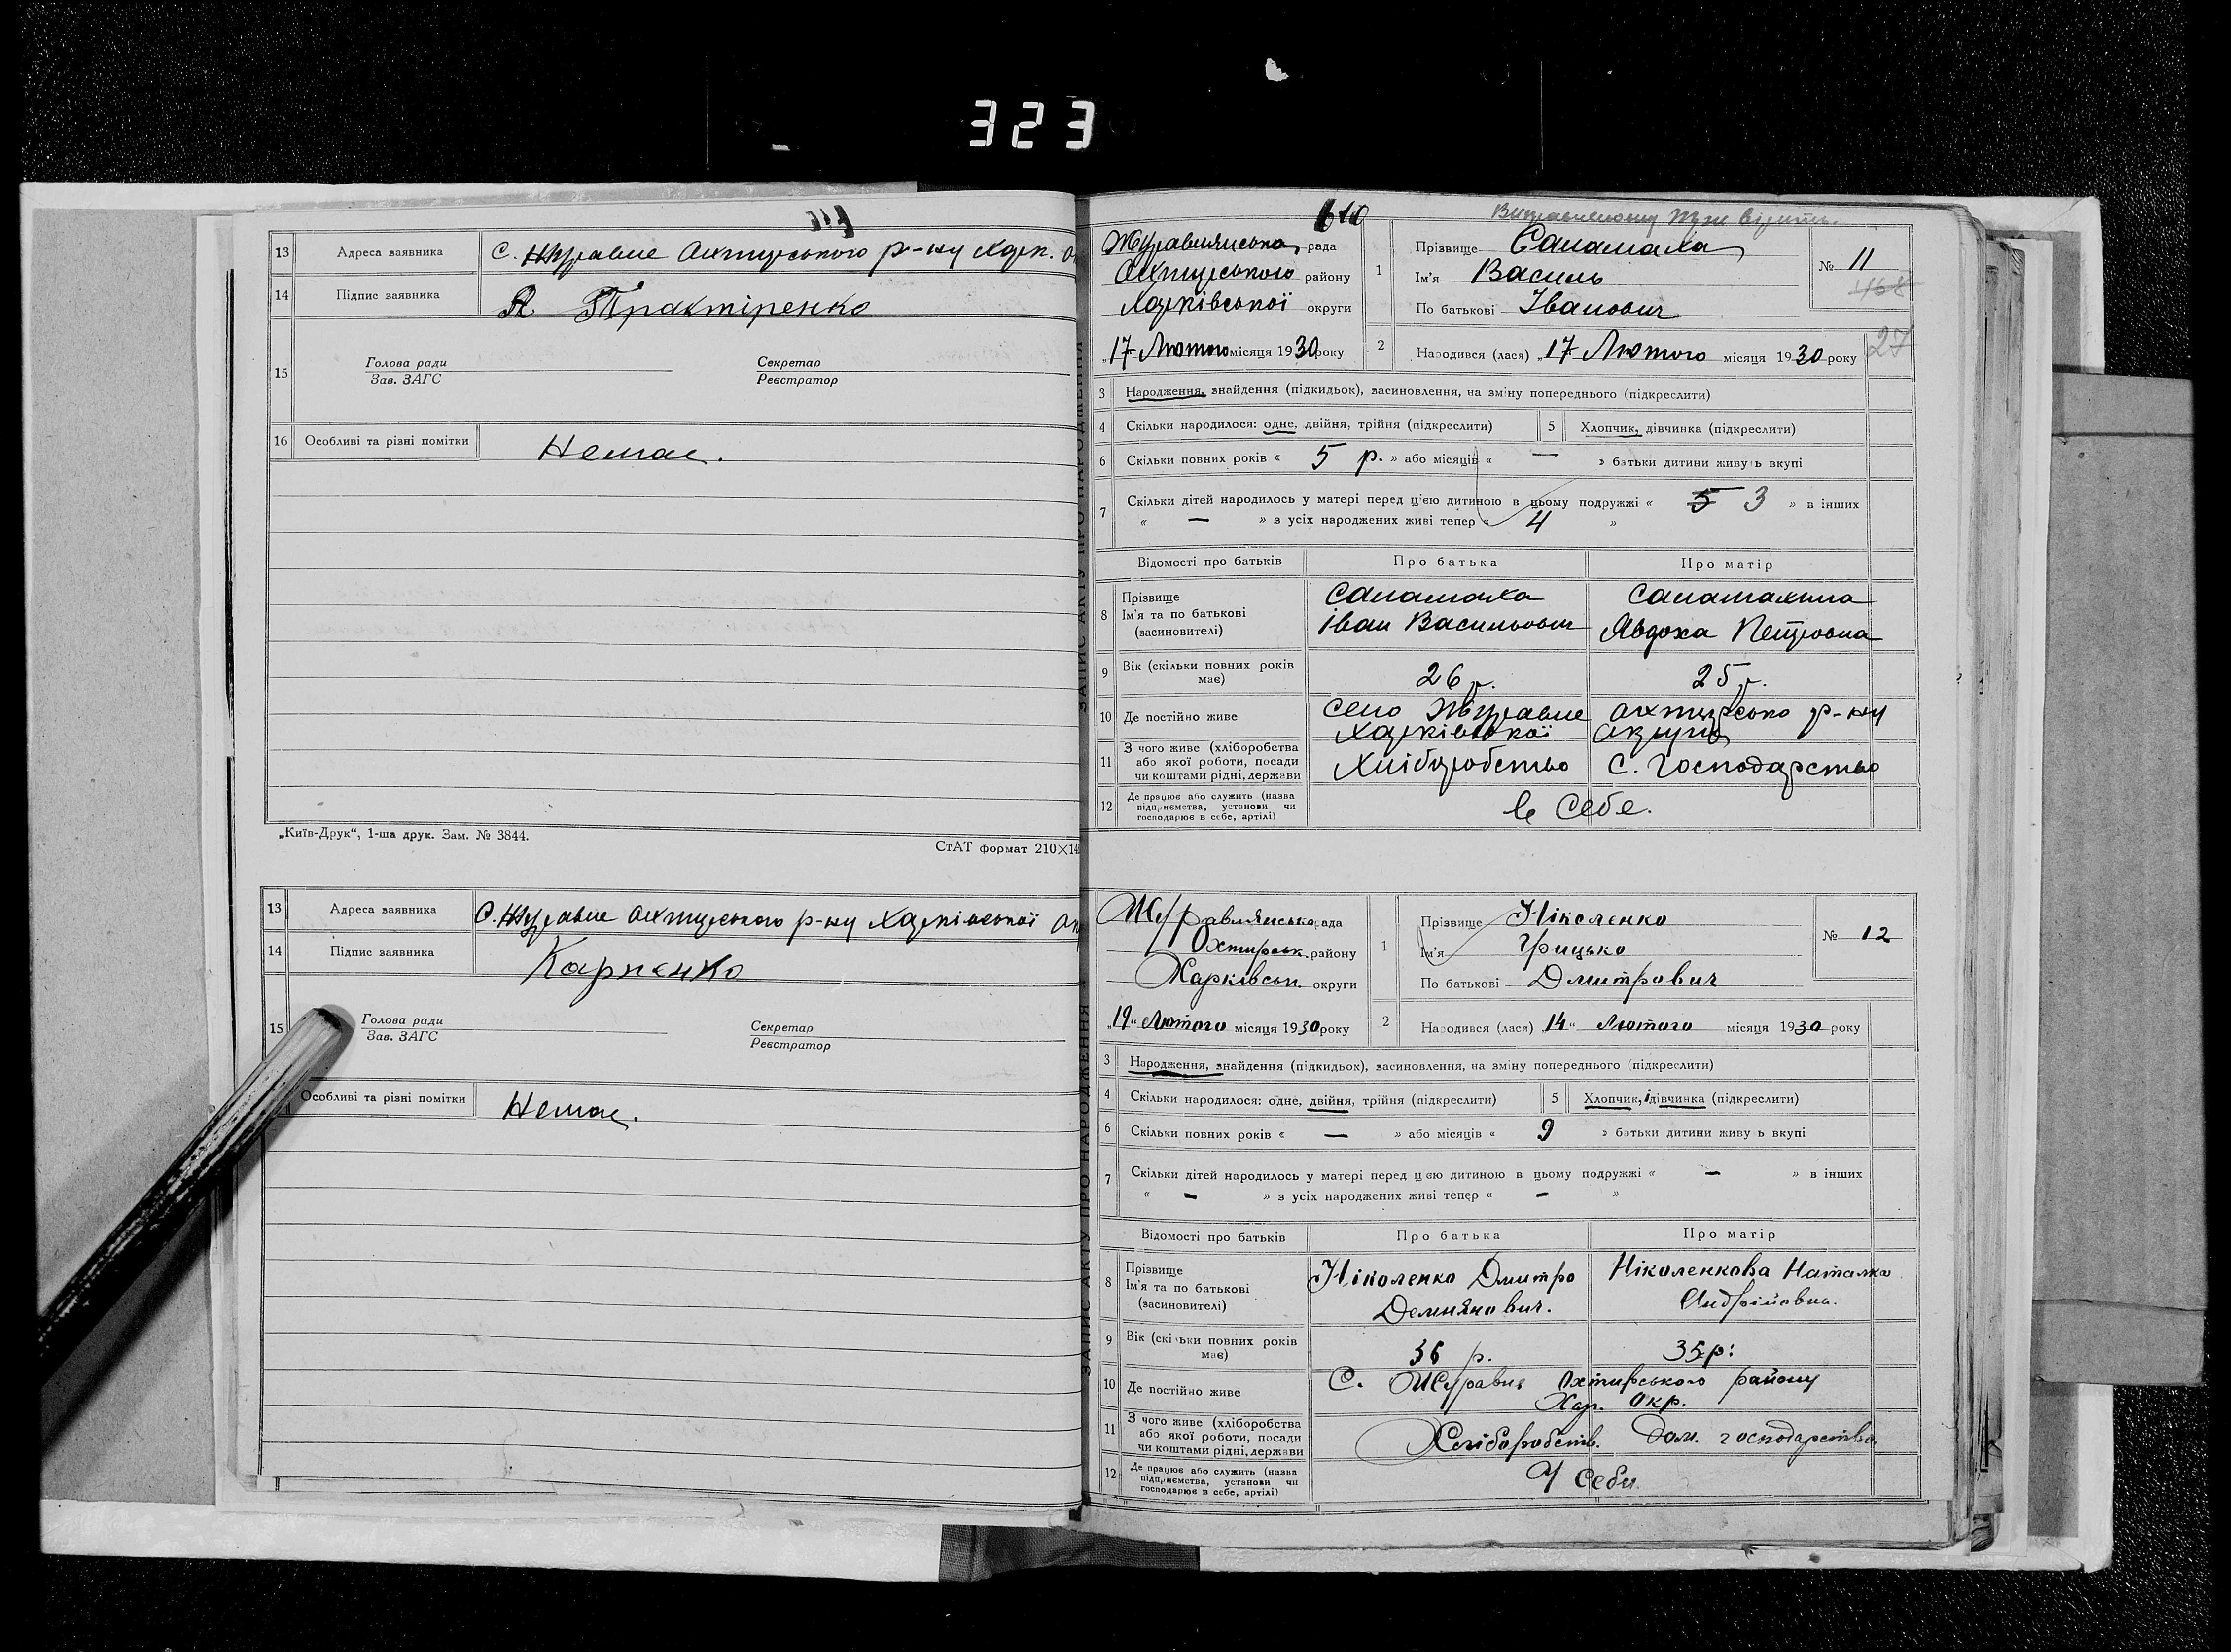 323
13 Адреса заявника С. Журавне Охтирського р-ну Харк.
14 Підпис заявника Я Трактіренко
15 Голова ради Секретар
Зав. ЗАГС Реєстратор
16 Особливі та різні помітки Немає.
„Київ-Друк“, 1-ша друк. Зам. № 3844.
СтАТ формат 210×14
13 Адреса заявника С. Журавне Охтирського р-ну Харківської
14 Підпис заявника Карпенко
15 Голова ради Секретар
Зав. ЗАГС Реєстратор
Особливі та різні помітки Немає.
ЗАПИС АКТУ ПРО НАРОДЖЕННЯ
610
Журавнянська рада
Охтирського району
Харківської округи
„17 Лютого місяця 1930 року
1 Прізвище Саламаха
Ім'я Василь
По батькові Іванович
№ 11
468
27
2 Народився (лася) „17 Лютого місяця 1930 року
3 Народження, знайдення (підкидьок), засиновлення, на зміну попереднього (підкреслити)
4 Скільки народилося: одне, двійня, трійня (підкреслити) 5 Хлопчик, дівчинка (підкреслити)
6 Скільки повних років « 5 р. » або місяців « — » батьки дитини живуть вкупі
7 Скільки дітей народилось у матері перед цією дитиною в цьому подружжі « 5 3 » в інших
« — » з усіх народжених живі тепер « 4 »
Відомості про батьків Про батька Про матір
8 Прізвище Ім'я та по батькові (засиновителі)
Саламаха Саламахина
Іван Васильович Явдоха Петровна
9 Вік (скільки повних років має) 26 р. 25 р.
10 Де постійно живе Село Журавне Охтирсько р-ну
Харківської Округи
11 З чого живе (хліборобства або якої роботи, посади чи коштами рідні, держави
Хліборобство С. Господарство
12 Де працює або служить (назва підприємства, установи чи господарює в себе, артілі)
в Себе.
ЗАПИС АКТУ ПРО НАРОДЖЕННЯ
Журавлянська рада
Охтирськ. району
Харківськ. округи
„19“ Лютого місяця 1930 року
1 Прізвище Ніколенко
Ім'я Грицько
По батькові Дмитрович
№ 12
2 Народився (лася) „14“ Лютого місяця 1930 року
3 Народження, знайдення (підкидьок), засиновлення, на зміну попереднього (підкреслити)
4 Скільки народилося: одне, двійня, трійня (підкреслити) 5 Хлопчик, і дівчинка (підкреслити)
6 Скільки повних років « — » або місяців « 9 » батьки дитини живуть вкупі
7 Скільки дітей народилось у матері перед цією дитиною в цьому подружжі « — » в інших
« — » з усіх народжених живі тепер « — »
Відомості про батьків Про батька Про матір
8 Прізвище Ім'я та по батькові (засиновителі)
Ніколенко Дмитро Ніколенкова Наталка
Демянович. Андрійовна.
9 Вік (скільки повних років має) 36 р. 35 р.
10 Де постійно живе С. Журавне Охтирського району
Хар. Окр.
11 З чого живе (хліборобства або якої роботи, посади чи коштами рідні, держави
Хліборобств. Дом. господарство
12 Де працює або служить (назва підприємства, установи чи господарює в себе, артілі)
У себи.